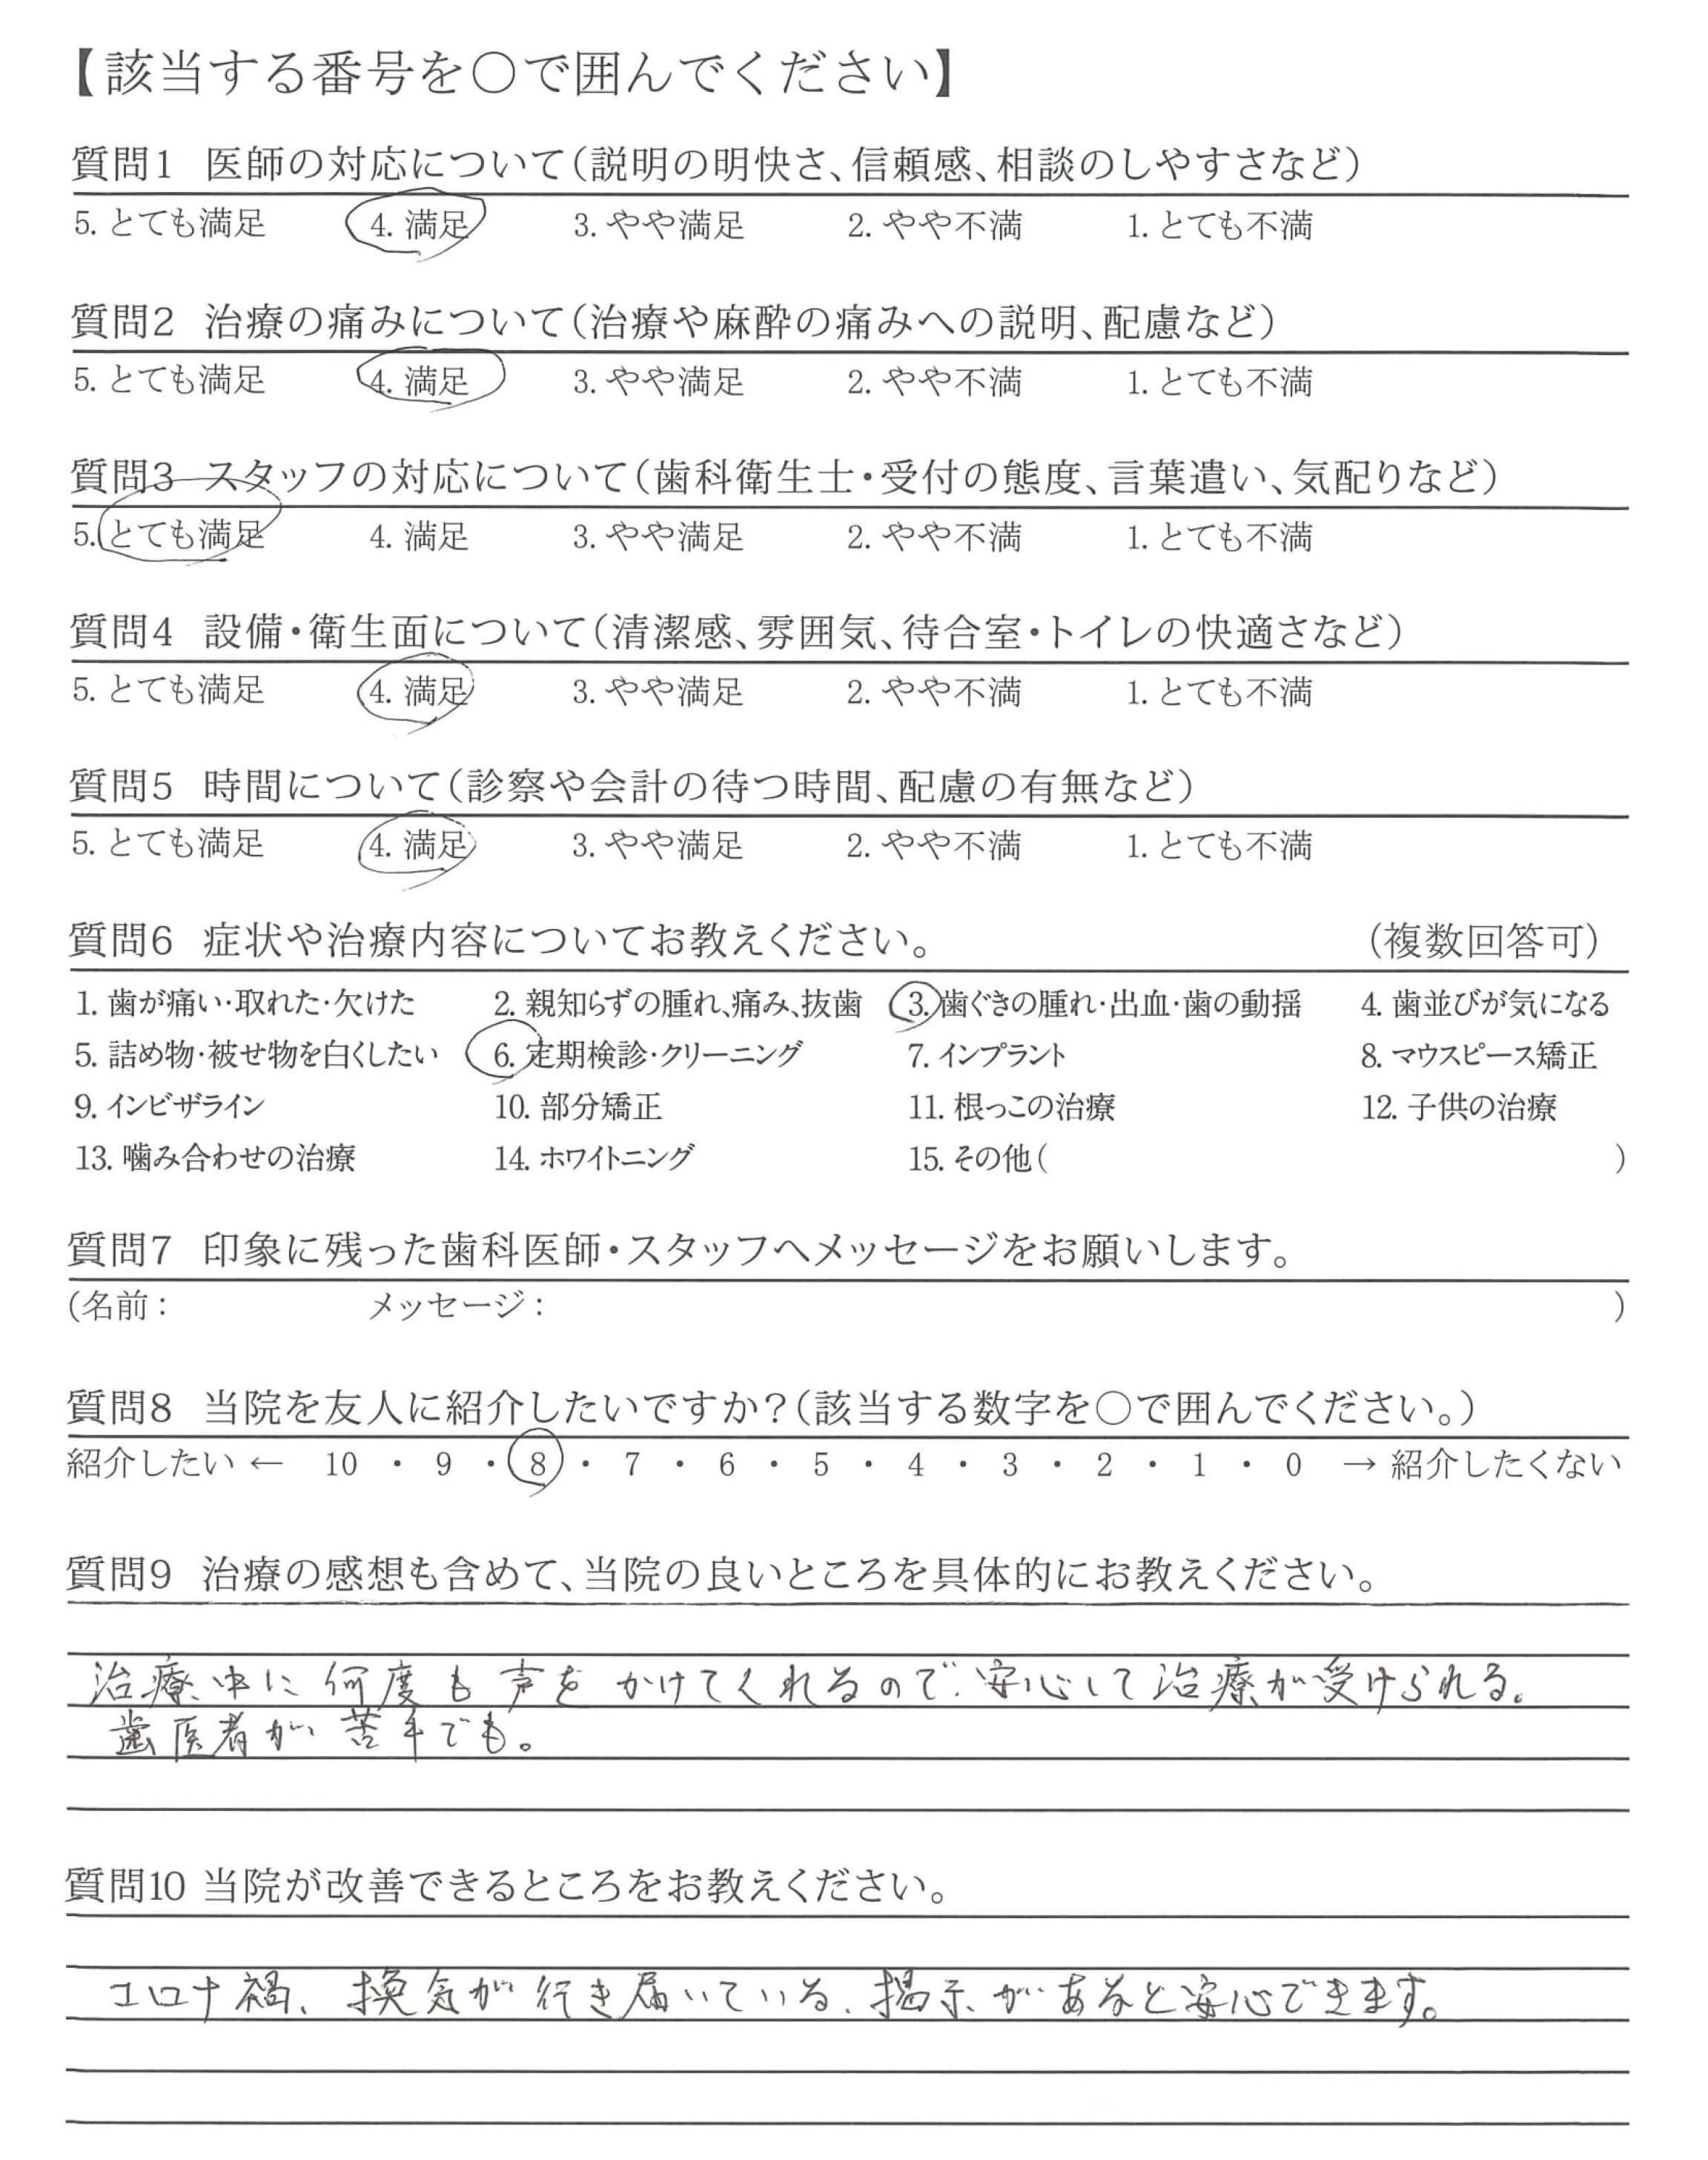 【該当する番号を○で囲んでください】
質問1 医師の対応について(説明の明快さ、信頼感、相談のしやすさなど)
5. とても満足 4. 満足 3. やや満足 2. やや不満 1. とても不満
質問2 治療の痛みについて(治療や麻酔の痛みへの説明、配慮など)
5. とても満足 4. 満足 3. やや満足 2. やや不満 1. とても不満
質問3 スタッフの対応について(歯科衛生士・受付の態度、言葉遣い、気配りなど)
5. とても満足 4. 満足 3. やや満足 2. やや不満 1. とても不満
質問4 設備・衛生面について(清潔感、雰囲気、待合室・トイレの快適さなど)
5. とても満足 4. 満足 3. やや満足 2. やや不満 1. とても不満
質問5 時間について(診察や会計の待つ時間、配慮の有無など)
5. とても満足 4. 満足 3. やや満足 2. やや不満 1. とても不満
質問6 症状や治療内容についてお教えください。 (複数回答可)
1. 歯が痛い・取れた・欠けた 2. 親知らずの腫れ、痛み、抜歯 3. 歯ぐきの腫れ・出血・歯の動揺 4. 歯並びが気になる
5. 詰め物・被せ物を白くしたい 6. 定期検診・クリーニング 7. インプラント 8. マウスピース矯正
9. インビザライン 10. 部分矯正 11. 根っこの治療 12. 子供の治療
13. 噛み合わせの治療 14. ホワイトニング 15. その他( )
質問7 印象に残った歯科医師・スタッフへメッセージをお願いします。
(名前: メッセージ: )
質問8 当院を友人に紹介したいですか?(該当する数字を○で囲んでください。)
紹介したい ← 10 ・ 9 ・ 8 ・ 7 ・ 6 ・ 5 ・ 4 ・ 3 ・ 2 ・ 1 ・ 0 → 紹介したくない
質問9 治療の感想も含めて、当院の良いところを具体的にお教えください。
治療中に何度も声をかけてくれるので、安心して治療が受けられる。
歯医者が苦手でも。
質問10 当院が改善できるところをお教えください。
コロナ禍、換気が行き届いている、掲示があると安心できます。